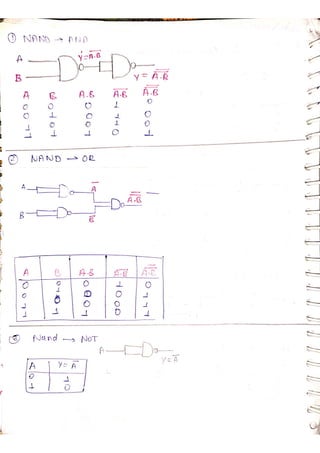 ① NAND → AND
A
B
Y = A̅.̅B̅
Y = A̿.̿B̿
A B A.B A̅.̅B̅ A̿.̿B̿
0 0 0 1 0
0 1 0 1 0
1 0 0 1 0
1 1 1 0 1
② NAND → OR
A
A̅
B
B̅
A̅.̅B̅
A B A.B A̅.̅B̅ A̿.̿B̿
0 0 0 1 0
0 1 0 0 1
1 0 0 0 1
1 1 1 0 1
③ Nand → NOT
A
Y = A̅
A Y = A̅
0 1
1 0